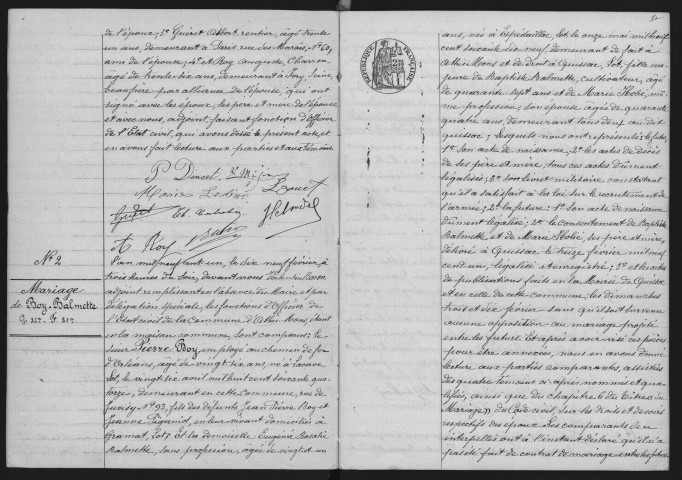 de l'épouse; 3º Guéret Albert rentier, âgé trente
un ans, demeurant à Paris rue des Marais, Nº 60,
ami de l'épouse; 4º et Roy Auguste Charron
âgé de trente-six ans, demeurant à Ivry, Seine,
beau-frère par alliance de l'épouse, qui ont
signé avec les époux, les père et mère de l'épouse
et avec nous, adjoint, faisant fonction d'Officier
de l'Etat civil, qui avons dressé le présent acte et
en avons fait lecture aux parties et aux témoins.
A Roy
Nº 2
Mariage
de Roy-Balmette
L'an mil neuf cent un, le dix neuf février à
trois heures du soir, devant nous
adjoint remplissant en l'absence du Maire et par
délégation spéciale, les fonctions d'Officier de
l'Etat civil de la Commune d'Athis-Mons, étant
en la maison commune, sont comparus: le
sieur Pierre Roy, employé au chemin de fer
d'Orléans, âgé de vingt six ans, né à
Lot, le vingt six avril mil huit cent soixante qua-
torze, demeurant en cette Commune, rue de
Juvisy Nº 93, fils des défunts Jean Pierre Roy et
Jeanne Pégourié, en leur vivant domiciliés à
Gramat, (Lot); Et la demoiselle Eugénie Rosalie
Balmette, sans profession, âgée de vingt et un
RÉPUBLIQUE FRANÇAISE
ans, née à Espédaillac, Lot, le onze mai mil huit
cent soixante dix neuf, demeurant de fait à
Athis-Mons et de droit à Quissac, Lot, fille ma-
jeure de Baptiste Balmette, cultivateur, âgé
de quarante sept ans et de Marie
me profession, son épouse âgée de quarante
quatre ans, demeurant tous deux au dit
Quissac; lesquels nous ont représenté: le futur,
1º son acte de naissance; 2º les actes de décès
de ses père et mère; tous ces actes dûment
légalisés; 3º son livret militaire constatant
qu'il a satisfait à les lois sur le recrutement de
l'armée; 2º la future: 1º son acte de naissance
dûment légalisé; 2º le consentement de Baptiste
Balmette et de Marie ses père et mère,
délivré à Quissac le treize février mil neuf
cent un, légalisé et enregistré; 3º et les actes
de publications faites en la Mairie de Quissac
et en celle de cette commune, les dimanches
trois et dix février sans qu'il soit survenu
aucune opposition au mariage projeté
entre les futurs. Et après avoir visé ces pièces
pour être annexées, nous en avons donné
lecture aux parties comparantes, assistées
des quatre témoins ci-après nommés et qua-
lifiés, ainsi que du chapitre 6 du titre du
Mariage du Code civil, sur les droits et devoirs
respectifs des époux. Les comparants de nous
interpellés ont à l'instant déclaré qu'il n'a
pas été fait de contrat de mariage entre les futurs.